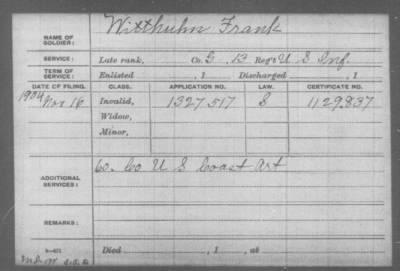 NAME OF SOLDIER: Witthuhn Frank
SERVICE: Late rank, Co. G, 13 Reg't U S Inf.
TERM OF SERVICE: Enlisted , 1 Discharged , 1
DATE OF FILING. CLASS. APPLICATION NO. LAW. CERTIFICATE NO.
1904 Nov 16 Invalid, 1327517 G 1129837
Widow,
Minor,
ADDITIONAL SERVICES: 60. Co U S Coast Art
REMARKS:
Died , 1 , at